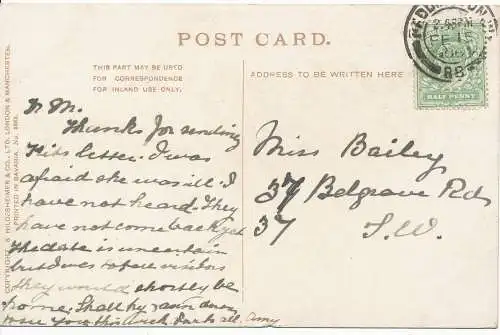 POST CARD.
THIS PART MAY BE USED
FOR CORRESPONDENCE
FOR INLAND USE ONLY.
ADDRESS TO BE WRITTEN HERE
HALF PENNY
COPYRIGHT, S. HILDESHEIMER & CO., LTD. LONDON & MANCHESTER.
PRINTED IN BAVARIA,
Dr M.
Thanks for sending
Kits letter. I was
afraid she was ill. I
have not heard. They
have not come back yet
The date is uncertain
but I was to tell visitors
they would shortly be
home. Shall try
you this week all. Amy
Miss Bailey
37 Belgrave Rd
37 S.W.